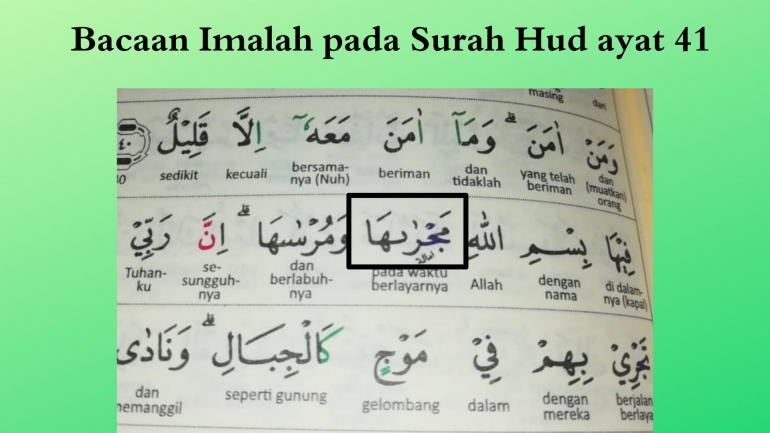 Bacaan Imalah pada Surah Hud ayat 41
masing
dan
وَمَنْ اٰمَنَ ۗ وَمَآ اٰمَنَ مَعَهٗٓ اِلَّا قَلِيْلٌ ٤٠
dan (muatkan) orang
yang telah beriman
dan tidaklah
beriman
bersama-nya (Nuh)
kecuali
sedikit
40
فِيْهَا بِسْمِ اللّٰهِ مَجْرٰىهَا وَمُرْسٰىهَا ۗ اِنَّ رَبِّيْ
امالة
di dalam-nya (kapal)
dengan nama
Allah
pada waktu berlayarnya
dan berlabuh-nya
se-sungguh-nya
Tuhan-ku
تَجْرِيْ بِهِمْ فِيْ مَوْجٍ كَالْجِبَالِ ۗ وَنَادٰى
berjalan
dengan mereka
dalam
gelombang
seperti gunung
dan memanggil